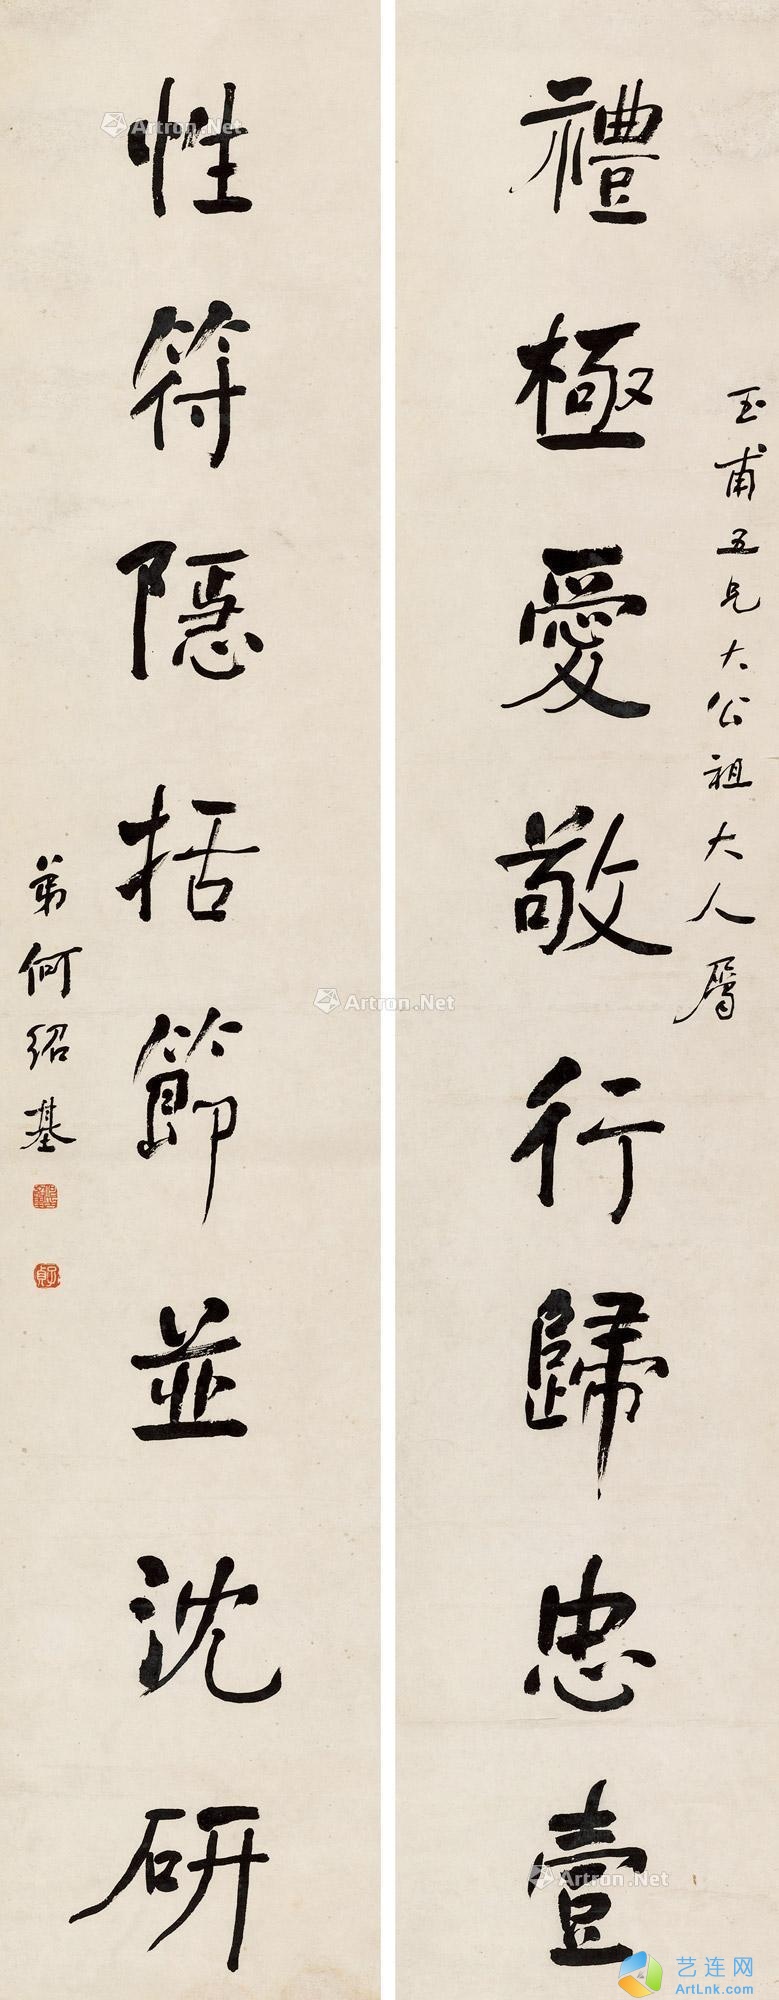 玉甫五兄大公祖大人屬
禮極愛敬行歸忠壹
性符隱括節並沈研
弟何紹基
Artron.Net
Artron.Net
Artron.Net
Artron.Net
艺连网
ArtLnk.com